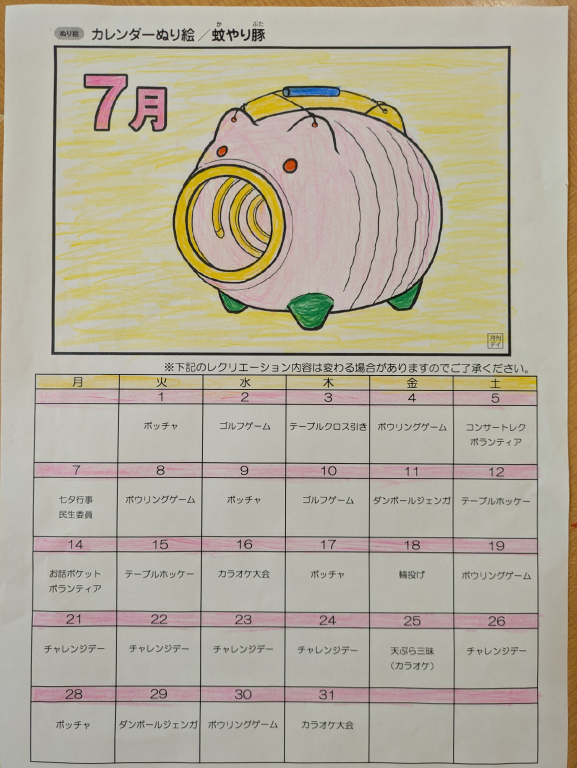 ぬり絵 カレンダーぬり絵／蚊やり豚
か ぶた
7月
月刊
デイ
※下記のレクリエーション内容は変わる場合がありますのでご了承ください。
月 火 水 木 金 土
1 2 3 4 5
ボッチャ ゴルフゲーム テーブルクロス引き ボウリングゲーム コンサートレク
ボランティア
7 8 9 10 11 12
七夕行事 ボウリングゲーム ボッチャ ゴルフゲーム ダンボールジェンガ テーブルホッケー
民生委員
14 15 16 17 18 19
お話ポケット テーブルホッケー カラオケ大会 ボッチャ 輪投げ ボウリングゲーム
ボランティア
21 22 23 24 25 26
チャレンジデー チャレンジデー チャレンジデー チャレンジデー 天ぷら三昧 チャレンジデー
（カラオケ）
28 29 30 31
ボッチャ ダンボールジェンガ ボウリングゲーム カラオケ大会